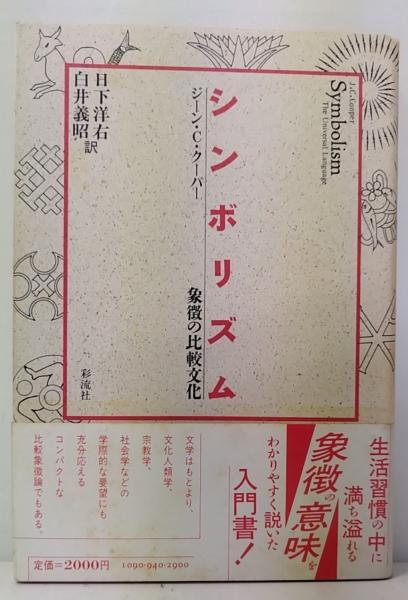 J.C.Cooper
Symbolism
The Universal Language
シンボリズム
ジーン・C・クーパー
象徴の比較文化
日下洋右
白井義昭
訳
彩流社
生活習慣の中に
満ち溢れる
象徴の意味を
わかりやすく説いた
入門書!
文学はもとより、
文化人類学、
宗教学、
社会学などの
学際的な要望にも
充分応える
コンパクトな
比較象徴論でもある。
定価=2000円
1090-940-2900